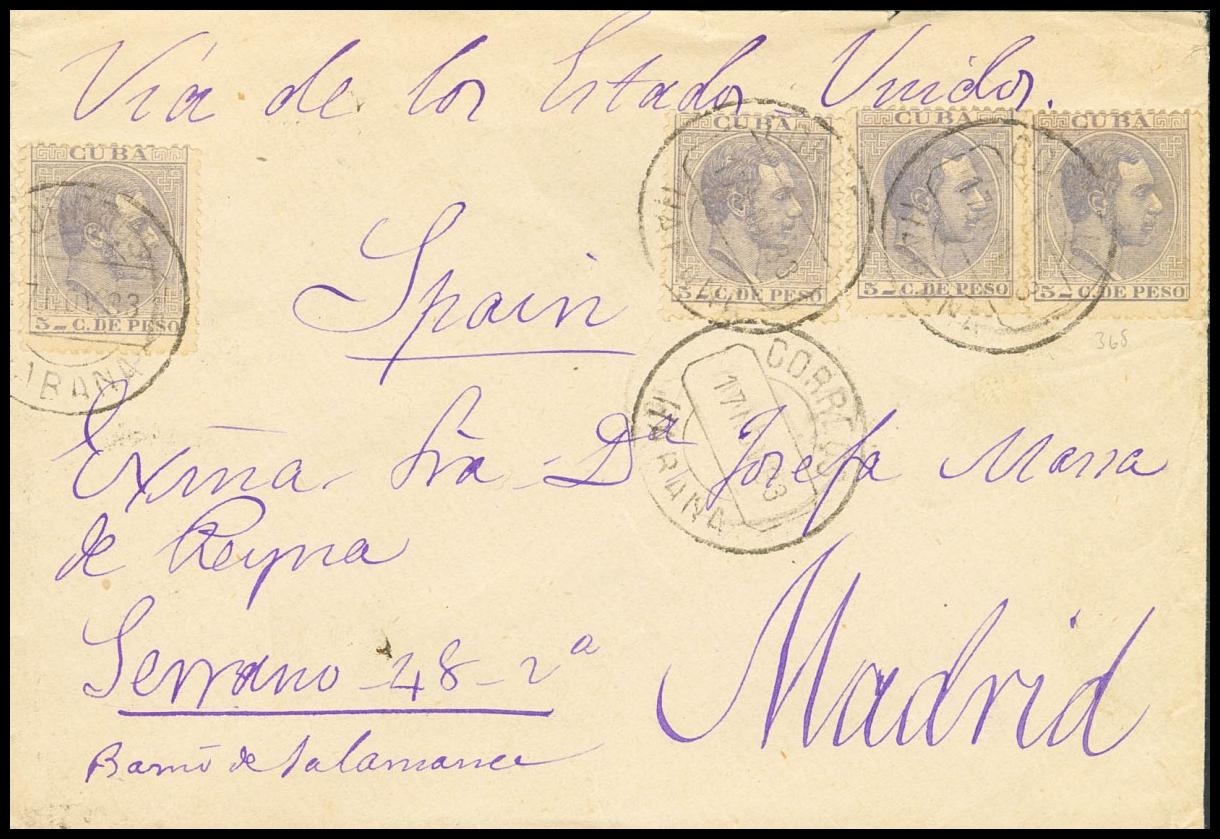 Via de los Estados Unidos.
CUBA
5 C. DE PESO
CUBA
5 C. DE PESO
CUBA
5 C. DE PESO
CUBA
5 C. DE PESO
Spain
368
CORREOS
HABANA
Exma Sra Dª Josefa Massa
de Reyna
Serrano 48 2ª
Barrio de Salamanca
Madrid